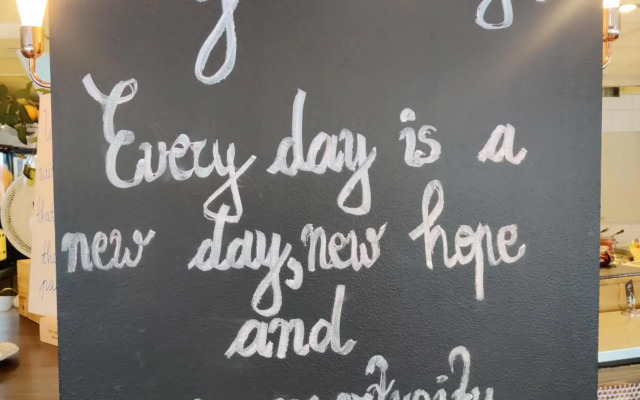 Every day is a
new day, new hope
and